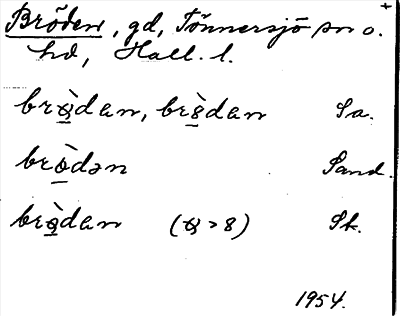 Bröden, gd, Tönnersjö sn o.
hd, Hall. l.
brɷ̀dan, brꝸ̀dan Sa.
bròdən Sand.
brɷ̀dan (ɷ > 8) Sk.
1954.